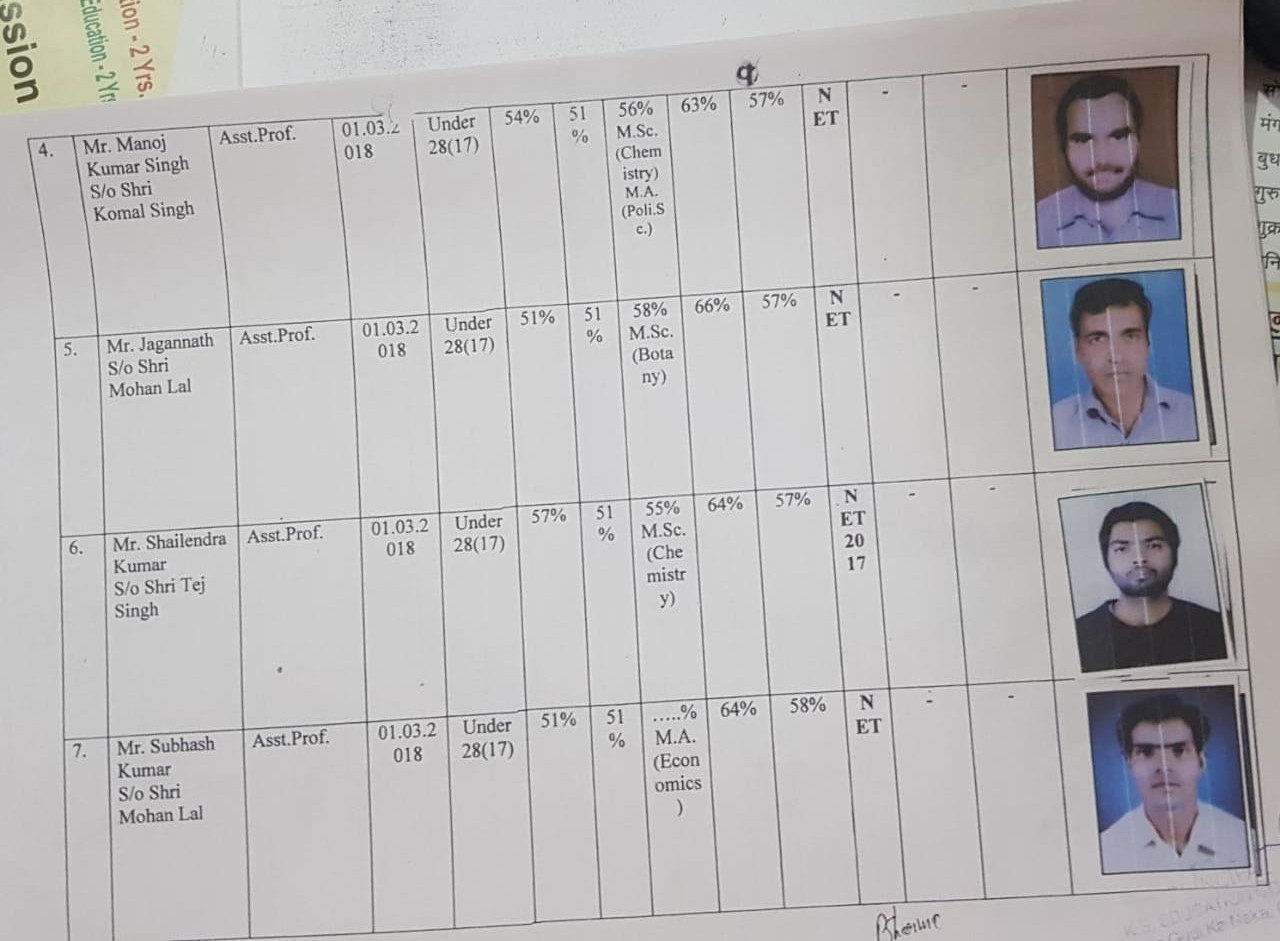 ssion
Education - 2 Yrs
tion - 2 Yrs.
9
4. Mr. Manoj Kumar Singh S/o Shri Komal Singh Asst.Prof. 01.03.2 018 Under 28(17) 54% 51 % 56% M.Sc. (Chem istry) M.A. (Poli.S c.) 63% 57% N ET - -
5. Mr. Jagannath S/o Shri Mohan Lal Asst.Prof. 01.03.2 018 Under 28(17) 51% 51 % 58% M.Sc. (Bota ny) 66% 57% N ET - -
6. Mr. Shailendra Kumar S/o Shri Tej Singh Asst.Prof. 01.03.2 018 Under 28(17) 57% 51 % 55% M.Sc. (Che mistr y) 64% 57% N ET 20 17 - -
7. Mr. Subhash Kumar S/o Shri Mohan Lal Asst.Prof. 01.03.2 018 Under 28(17) 51% 51 % .....% M.A. (Econ omics ) 64% 58% N ET - -
मंग
बुध
गुरु
शुक्र
K.S. EDUCATION